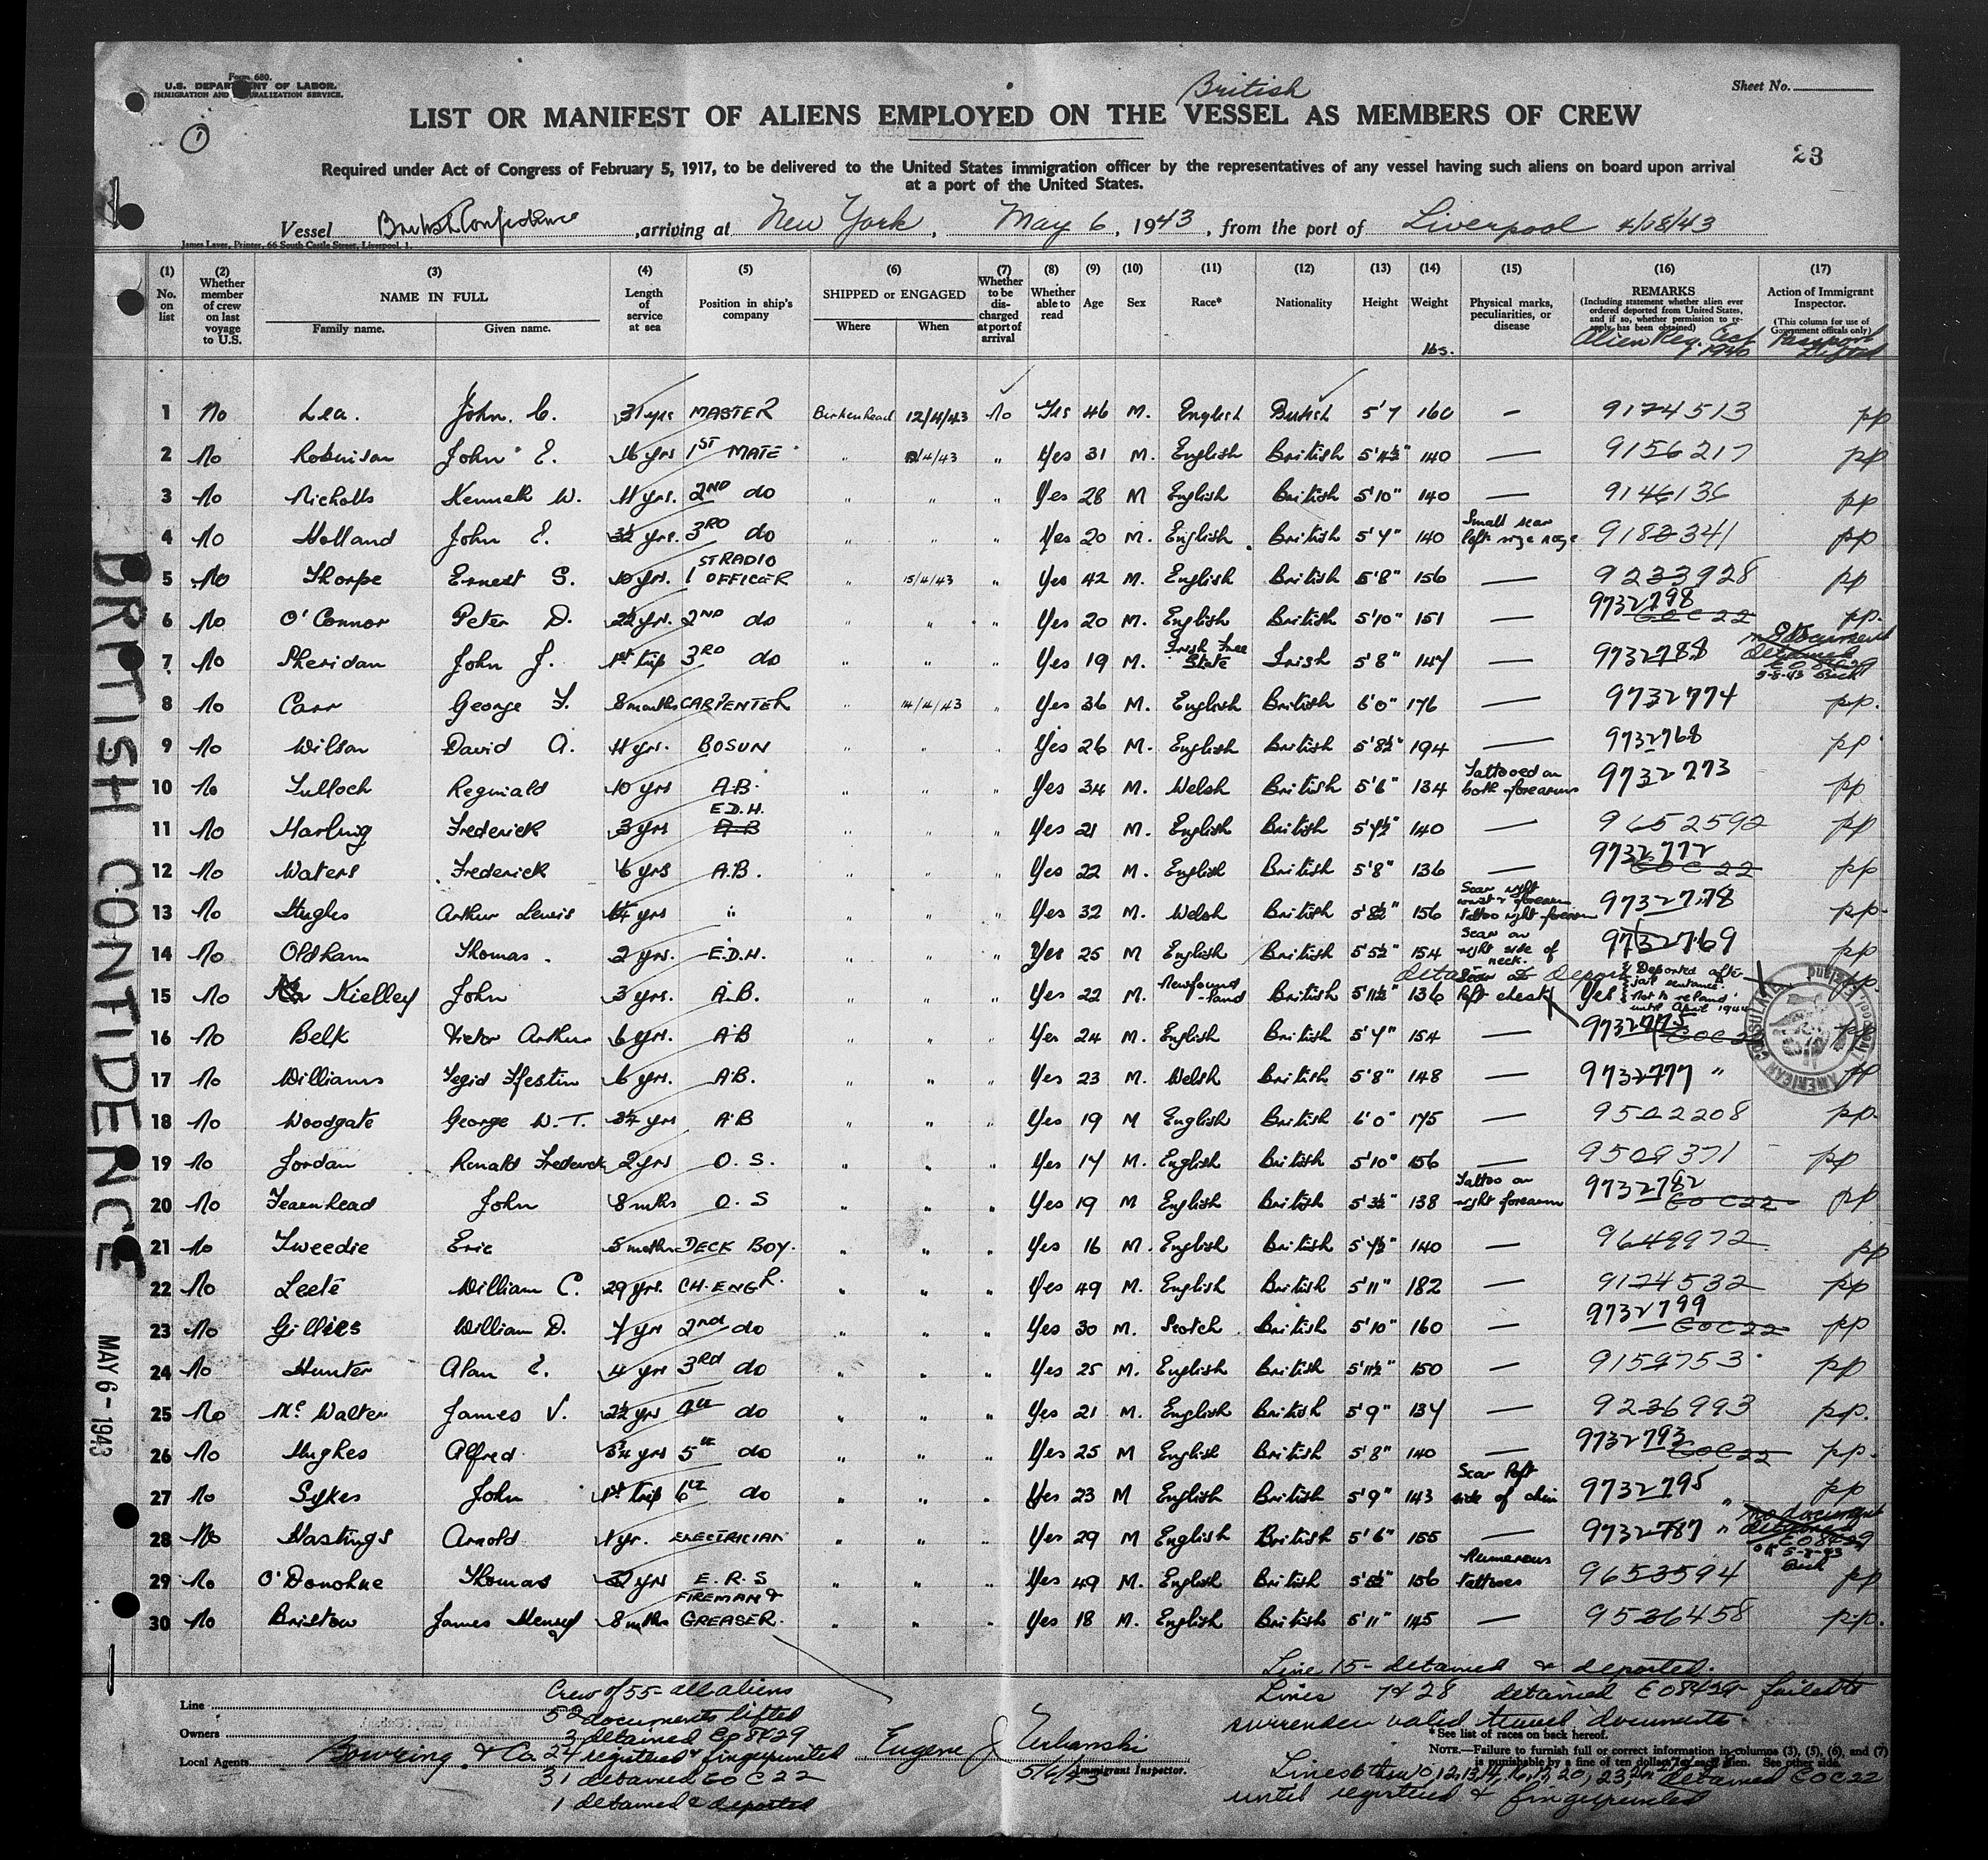 Form 680.
U.S. DEPARTMENT OF LABOR.
IMMIGRATION AND NATURALIZATION SERVICE.
Sheet No.
1
British
LIST OR MANIFEST OF ALIENS EMPLOYED ON THE VESSEL AS MEMBERS OF CREW
23
Required under Act of Congress of February 5, 1917, to be delivered to the United States immigration officer by the representatives of any vessel having such aliens on board upon arrival
at a port of the United States.
Vessel British Confidence, arriving at New York, May 6, 1943, from the port of Liverpool 4/18/43
James Laver, Printer, 66 South Castle Street, Liverpool, 1.
(1) (2) (3) (4) (5) (6) (7) (8) (9) (10) (11) (12) (13) (14) (15) (16) (17)
No. on list
Whether member of crew on last voyage to U.S.
NAME IN FULL
Family name. Given name.
Length of service at sea
Position in ship's company
SHIPPED or ENGAGED
Where When
Whether to be discharged at port of arrival
Whether able to read
Age
Sex
Race*
Nationality
Height
Weight
lbs.
Physical marks, peculiarities, or disease
REMARKS
(Including statement whether alien ever ordered deported from United States, and if so, whether permission to reapply has been obtained)
Alien Reg. Act 1940
Action of Immigrant Inspector.
(This column for use of Government officials only)
Passport Lifted
1 No Lea. John. C. 31 yrs MASTER Birkenhead 12/4/43 No Yes 46 M. English British 5'7 160 — 9124513 pp
2 No Robinson John E. 16 yrs 1ST MATE " /4/43 " Yes 31 M. English British 5'11½" 140 — 9156217 pp
3 No Nicholls Kenneth W. 11 yrs. 2ND do " " " Yes 28 M English British 5'10" 140 — 9146136 pp
4 No Holland John E. 3½ yrs. 3RD do " " " Yes 20 M. English British 5'7" 140 Small scar left side nose 9182341 pp
5 No Thorpe Ernest S. 10 yrs. 1ST RADIO OFFICER " 15/4/43 " Yes 42 M. English British 5'8" 156 — 9233928 pp
6 No O'Connor Peter D. 2½ yrs. 2ND do " " " Yes 20 M. English British 5'10" 151 — 9732798 EOC22 pp.
7 No Sheridan John J. 1st trip 3RD do " " " Yes 19 M. Irish Free State Irish 5'8" 147 — 9732788 no document detained EO8429 OK 5-8-43
8 No Carr George F. 8 months CARPENTER " 14/4/43 " Yes 36 M. English British 6'0" 176 — 9732774 pp.
9 No Wilson David A. 11 yrs. BOSUN " " " Yes 26 M. English British 5'8½" 194 — 9732768 pp
10 No Tulloch Reginald 10 yrs A.B. " " " Yes 34 M. Welsh British 5'6" 134 Tattooed on both forearms 9732773 pp
11 No Harling Frederick 3 yrs E.D.H. A.B " " " Yes 21 M. English British 5'7½" 140 — 9652592 pp
12 No Waters Frederick 6 yrs A.B. " " " Yes 22 M. English British 5'8" 136 — 9732772 EOC22 pp
13 No Hughes Arthur Lewis yrs " " " " Yes 32 M. Welsh British 5'8½" 156 Scar right wrist & forearm tattoo right forearm 9732778 pp.
14 No Oldham Thomas. 2 yrs. E.D.H. " " " Yes 25 M English British 5'5½" 154 Scar on right side of neck. 9732769 pp
15 No Kielley John 3 yrs. A.B. " " " Yes 22 M. Newfoundland British 5'11½" 136 Scar left cheek Yes Deported after jail sentence. Not to reland until April 1944 pp.
AMERICAN CONSULATE LIVERPOOL, ENGLAND
16 No Belk Victor Arthur 6 yrs. A.B " " " Yes 24 M. English British 5'7" 154 — 9732775 EOC22 pp
17 No Williams Tegid Ffestin 6 yrs. A.B. " " " Yes 23 M. Welsh British 5'8" 148 — 9732777 " pp
18 No Woodgate George W.T. yrs A.B " " " Yes 19 M English British 6'0" 175 — 9502208 pp.
19 No Jordan Ronald Frederick 2 yrs O.S. " " " Yes 17 M. English British 5'10" 156 — 9509371 pp
20 No Fearnhead John 8 mths O.S " " " Yes 19 M English British 5'3½" 138 Tattoo on right forearm 9732782 EOC22 pp
21 No Tweedie Eric 5 mths DECK BOY. " " " Yes 16 M. English British 5'7½" 140 — 9649972 pp
22 No Leete William C. 29 yrs. CH. ENGR. " " " Yes 49 M. English British 5'11" 182 — 9124532 pp
23 No Gillies William D. 7 yr 2nd do " " " Yes 30 M. Scotch British 5'10" 160 — 9732799 EOC22 pp
24 No Hunter Alan E. 4 yr 3rd do " " " Yes 25 M. English British 5'11½" 150 — 9159753 pp
25 No Mc Walter James V. 2½ yrs 4th do " " " Yes 21 M. English British 5'9" 137 — 9236993 pp.
26 No Hughes Alfred. yrs 5th do " " " Yes 25 M English British 5'8" 140 — 9732793 EOC22 pp.
27 No Sykes John 1st trip 6th do " " " Yes 23 M English British 5'9" 143 Scar left side of chin 9732795 " pp
28 No Hastings Arnold 1 yr. ELECTRICIAN " " " Yes 29 M English British 5'6" 155 — 9732787 " no document detained EO8429 OK 5-8-43
29 No O'Donohue Thomas yrs E.R.S " " " Yes 49 M. English British 5'5½" 156 Numerous tattoos 9653594 pp
30 No Bristow James Henry 8 mths FIREMAN & GREASER. " " " Yes 18 M. English British 5'11" 145 — 9536458 pp.
BRITISH CONFIDENCE
MAY 6-1943
Line
Owners
Local Agents Bowring & Co.
Crew of 55 - all aliens
52 documents lifted
3 detained EO 8429
24 registered & fingerprinted
31 detained EO C22
1 detained & deported
Eugene J Urbanski
5/6/43 Immigrant Inspector.
Line 15 - detained & deported.
Lines 7 & 28 detained EO8429 failed to
surrender valid travel documents.
*See list of races on back hereof.
NOTE.—Failure to furnish full or correct information in columns (3), (5), (6), and (7)
is punishable by a fine of ten dollars for each alien. See other side.
Lines 6 thru 10, 12, 13, 14, 16, 17, 20, 23, detained EOC22
until registered & fingerprinted